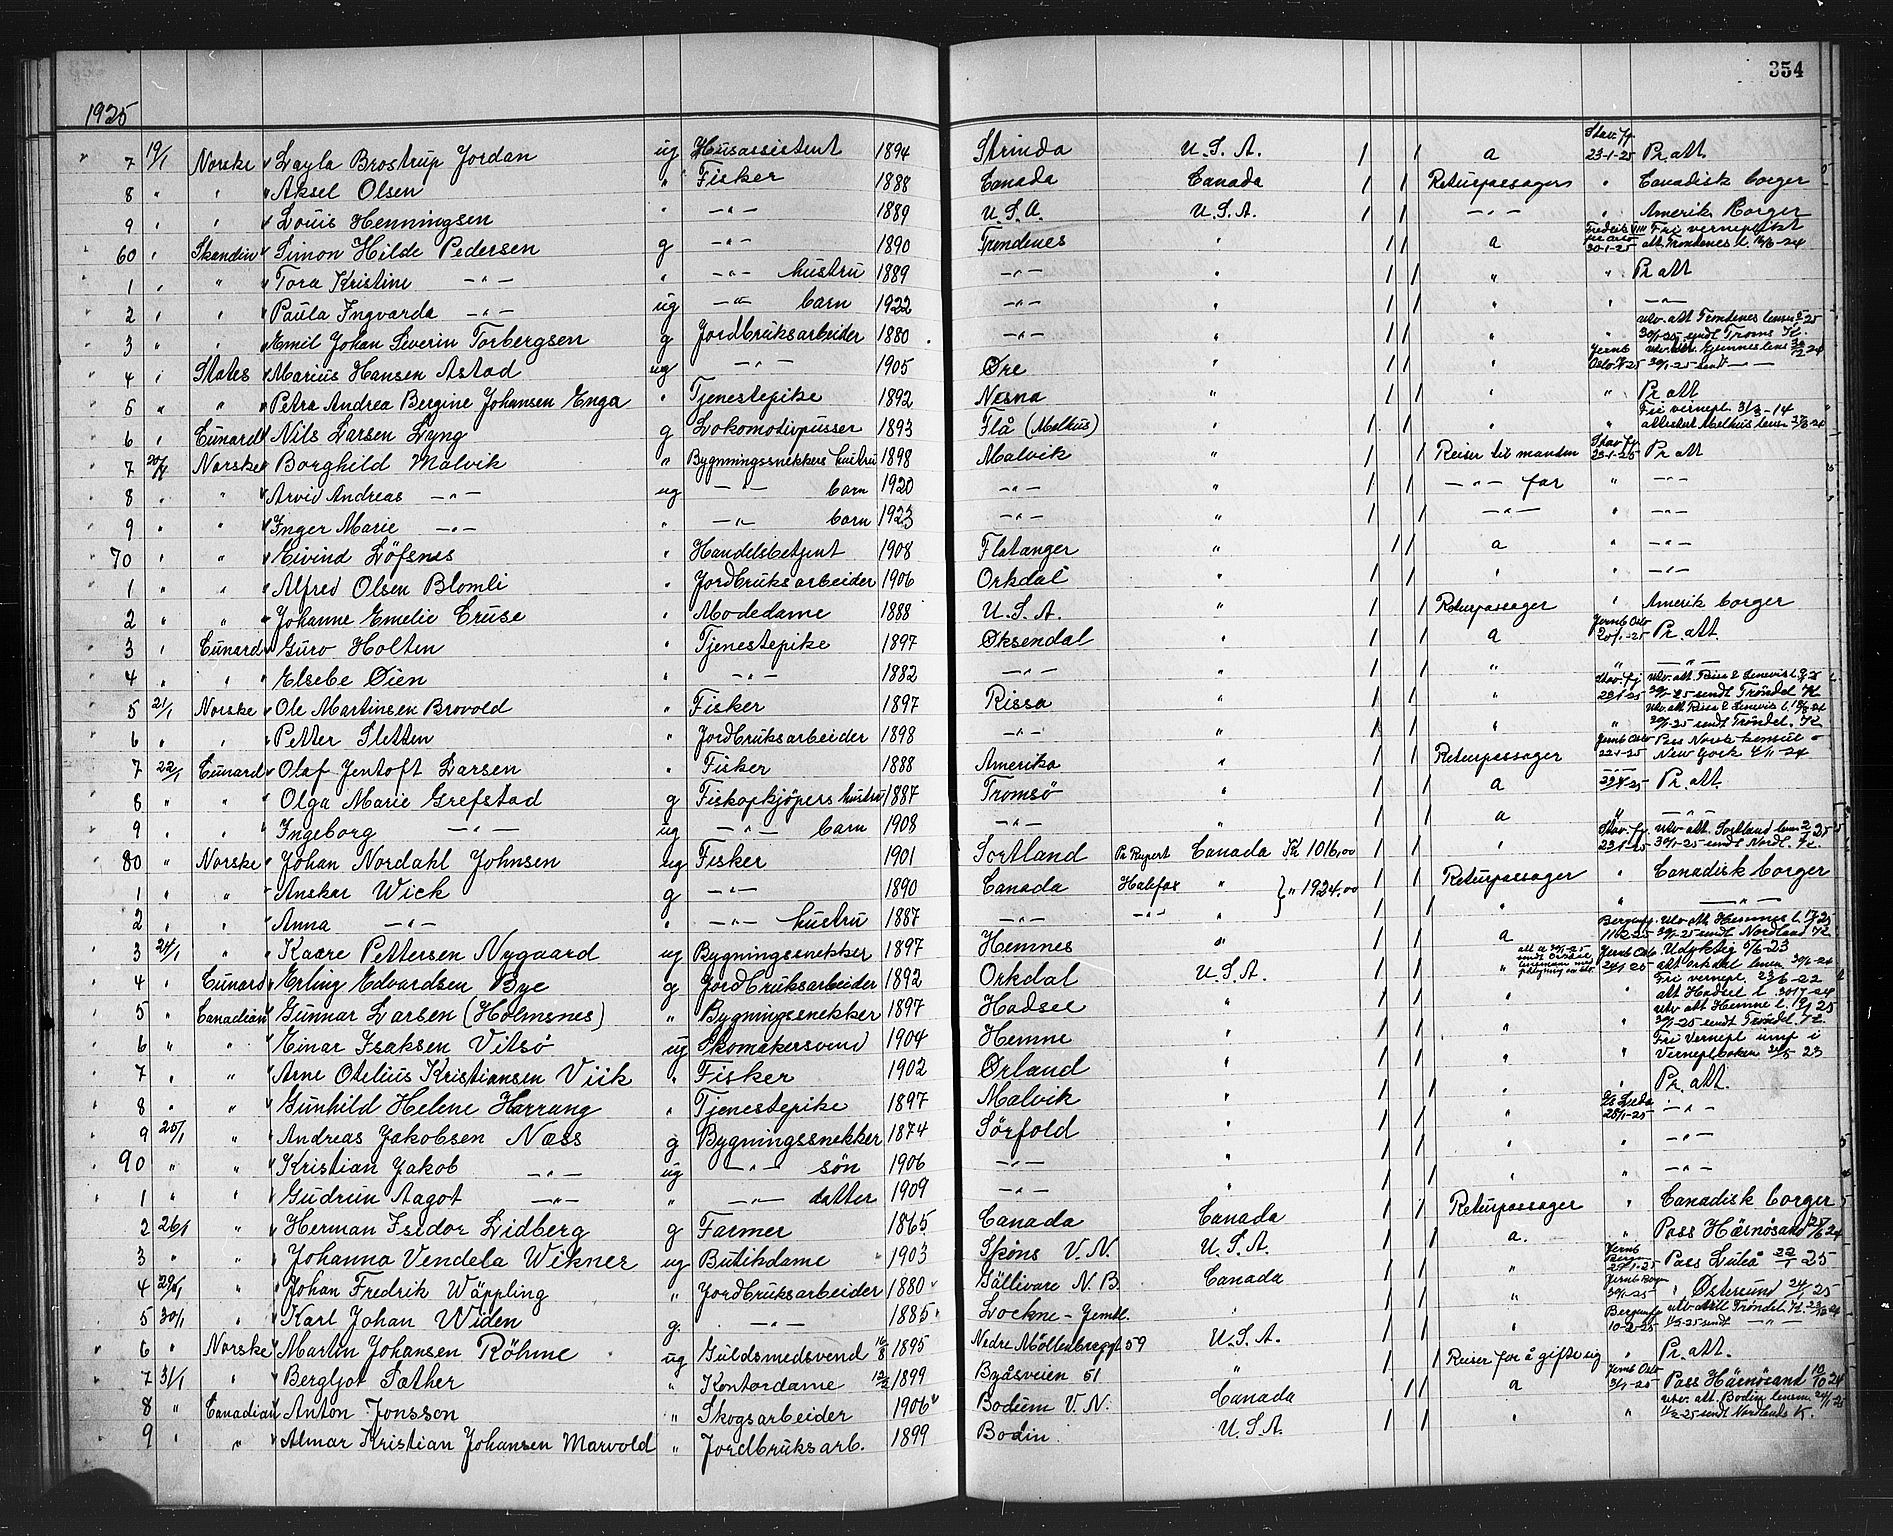 354
1925
7 19/1 Norske " Layla Brostrup Jordan ug Husassistent 1894 Strinda U.S.A. / / a Stav.fj. 23-1-25 Pr. att.
8 " " " Aksel Olsen " Fisker 1888 Canada Canada / / Returpassagers " Canadisk borger
9 " " " Louis Henningsen " -"- 1889 U.S.A. U.S.A. / / -"- " Amerik. Borger
60 " Skandin " Simon Hilde Pedersen g -"- 1890 Trondenes " / / a 30-1-25 Fri vernepligt att. Trondenes l.
1 " " " Tora Kristine -"- " -"- hustru 1889 -"- " / / " " Pr att
2 " " " Paula Ingvarda -"- ug -"- barn 1922 -"- " / / " " -"-
3 " " " Emil Johan Severin Torbergsen g Jordbruksarbeider 1880 -"- " / / " " utv. att Trondenes lensm 30/1-25 sendt Troms K.
4 " States " Marius Hansen Astad ug -"- 1905 Øre " / / " Jernb Oslo utv. att. Gjemnes lens 30/1-25 sendt -"-
5 " " " Petra Andrea Bergine Johansen Enga " Tjenestepike 1892 Nesna " / / " " Pr att
6 " Cunard " Nils Larsen Lyng g Lokomotivpusser 1893 Flå (Melhus) " / / " " Fri vernepl. 31/3-14 attestert Melhus lensm
7 20/1 Norske " Borghild Malvik " Bygningssnekkers hustru 1898 Malvik " / / Reiser til manden Stav. fj. 23-1-25 Pr att
8 " " " Arvid Andreas -"- ug -"- barn 1920 -"- " / / -"- far " -"-
9 " " " Inger Marie -"- " -"- barn 1923 -"- " / / -"- " -"-
70 " " " Eivind Löfsnes " Handelsbetjent 1908 Flatanger " / / a " -"-
1 " " " Alfred Olsen Blomli " Jordbruksarbeider 1906 Orkdal " / / " " -"-
2 " " " Johanne Emelie Cruse " Modedame 1888 U.S.A. " / / Returpassager " Amerik borger
3 " Cunard " Guro Holten " Tjenestepike 1897 Øksendal " / / a Jernb Oslo 20/1-25 Pr. att.
4 " " " Elsebe Öien " -"- 1882 -"- " / / " " -"-
5 21/1 Norske " Ole Martinsen Brovold " Fisker 1897 Rissa " / / " Stav. fj 23-1-25 utv. att Rissa 30/1-25 sendt Tröndel K
6 " " " Petter Sletten " Jordbruksarbeider 1898 -"- " / / " " utv. att Rissa 30/1-25 sendt Tröndel. K
7 22/1 Cunard " Olaf Jentoft Larsen " Fisker 1888 Amerika " / / Returpassager Jernb Oslo 22-1-25 Pass Norsk konsul New York 4/11-24
8 " " Olga Marie Grefstad g Fiskopkjøpers hustru 1884 Tromsö " / / a Pr. att.
9 " " " Ingeborg -"- ug -"- barn 1908 -"- " / / a " -"-
80 " Norske " Johan Nordahl Johnsen ug Fisker 1901 Sortland Pr Rupert Canada Kr 1016,00 / / " Stav. fj. 23-1-25 utv. att. Sortland lensm 30/1-25 sendt Nordl. K.
1 " " " Anskar Wick g -"- 1890 Canada Halifax " } " 1924,00 / / Returpassager " Canadisk borger
2 " " " Anna -"- " -"- hustru 1887 -"- -"- " / / " " -"-
3 24/1 " " Kaare Pettersen Nygaard ug Bygningssnekker 1897 Hemnes " / / a 11-2-25 utv. att Hemnes l. 30/1-25 sendt Nordland K
4 " Cunard " Erling Edvardsen Bye g Jordbruksarbeider 1892 Orkdal U.S.A. / / " Jernb Oslo 24/1-25 att Orkdal lensm
5 " Canadian " Gunnar Larsen (Holmsnes) " Bygningssnekker 1897 Hadsel " / / " " Fri vernepl. 23/6-22 att Hadsel l.
6 " " " Einar Isaksen Vitsö ug Skomakersvend 1904 Hemne " / / " " utv att Hemne l. 30/1-25 sendt Tröndel. K.
7 " " " Arne Otelius Kristiansen Viik " Fisker 1902 Ørland " / / " " Fri Vernepl. Verneplboken 23
8 " " " Gunhild Helene Harrang " Tjenestepike 1897 Malvik " / / " " Pr. att.
9 25/1 " " Andreas Jakobsen Næss g Bygningssnekker 1874 Sörfold " / / " -"-
90 " " " Kristian Jakob -"- ug -"- sön 1906 -"- " / / " " -"-
1 " " " Gudrun Aagot -"- " -"- datter 1909 -"- / / " " -"-
2 26/1 " " Herman Isidor Lidberg g Farmer 1865 Canada Canada / / Returpassager " Canadisk borger
3 " " " Johanna Vendela Wikner ug Butikdame " 1903 Sköns V.N. U.S.A. / / a. " Pass Härnösand 24
4 29/1 " " Johan Fredrik Wäppling " Jordbruksarbeider 1880 Gällivare N.B. Canada / / " Jernb Bergen Pass Luleå 22/1 25
5 30/1 " " Karl Johan Widen g. -"- 1885 Lockne - Jemtl. " / / " Jernb 30/1-25 " Östersund 24/1 25
6 " Norske " Martin Johansen Röhme ug Guldsmedsvend 16/8 1895 Nedre Möllenberggt 59 U.S.A. / / " Bergensfj 10-2-25 utv. att Tröndel. K. sendt -"-
7 31/1 " " Bergljot Sæther " Kontordame 12/2 1899 Byåsveien 51 " / / Reiser for å gifte sig " Pr. att.
8 " Canadian " Anton Jonsson " Skogsarbeider 1906 Bodum V.N. Canada / / a Jernb Oslo 31/1-25 Pass Härnösand 24
9 " " " Almar Kristian Johansen Marvold " Jordbruksarb. 1899 Bodin U.S.A. / / " " utv. att. Bodin lensm. sendt Nordlands K.